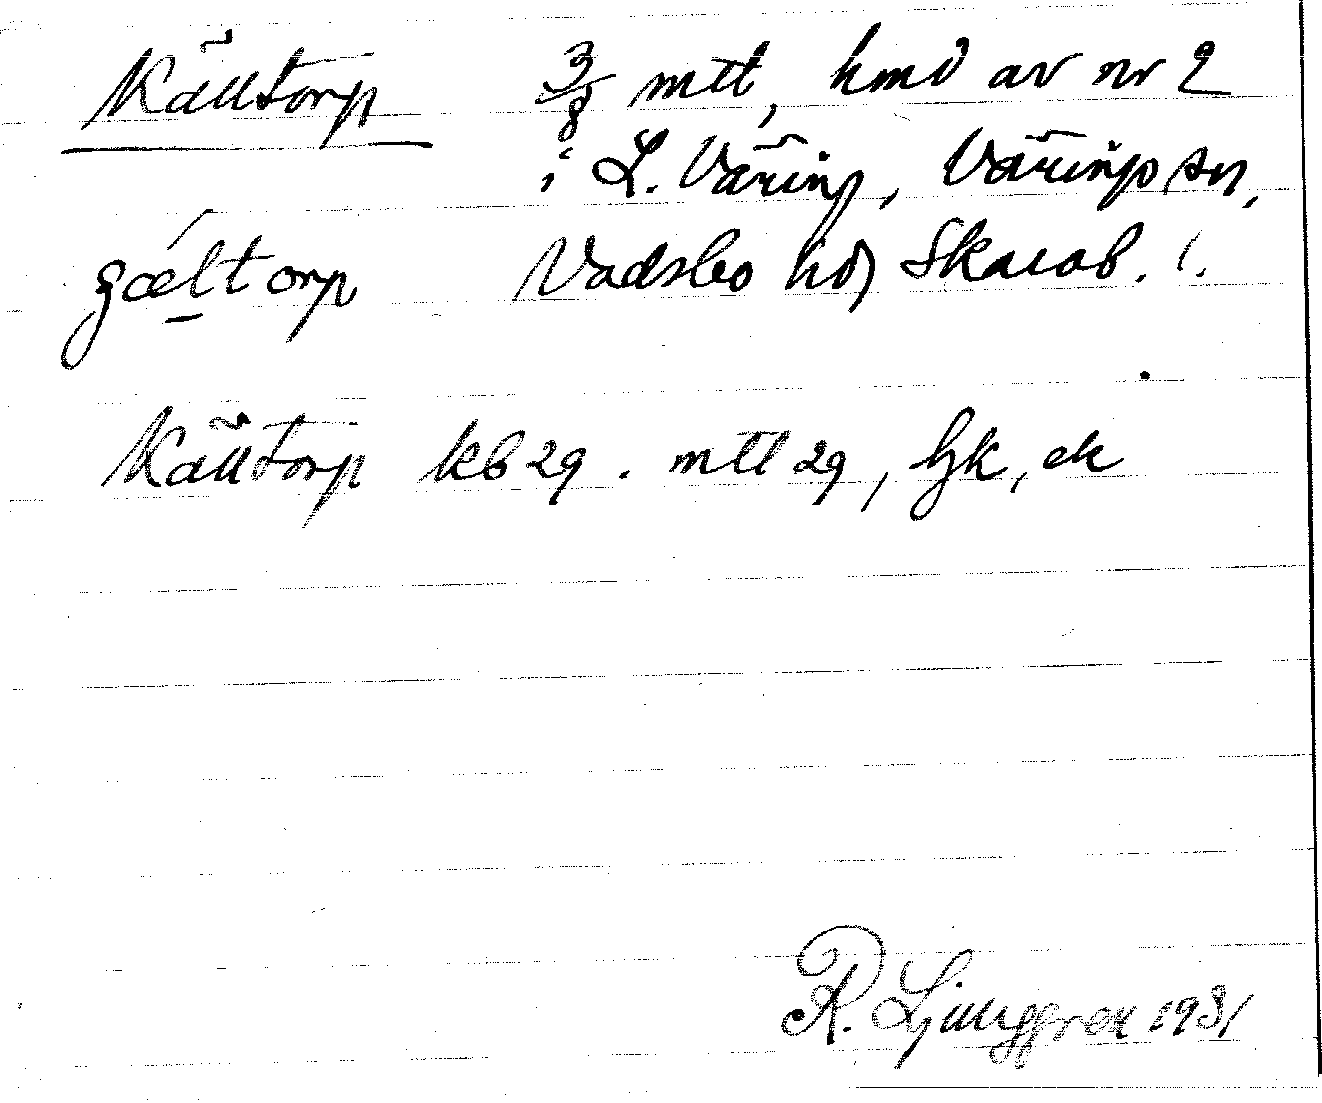 Källtorp 3/8 mtl, hmd av nr 2
i L. Väring, Värings sn,
gæ̀ltorp Vadsbo hd, Skarab. l.
Källtorp kb 29. mtl 29, hfk, ek
R. Ljunggren 1931